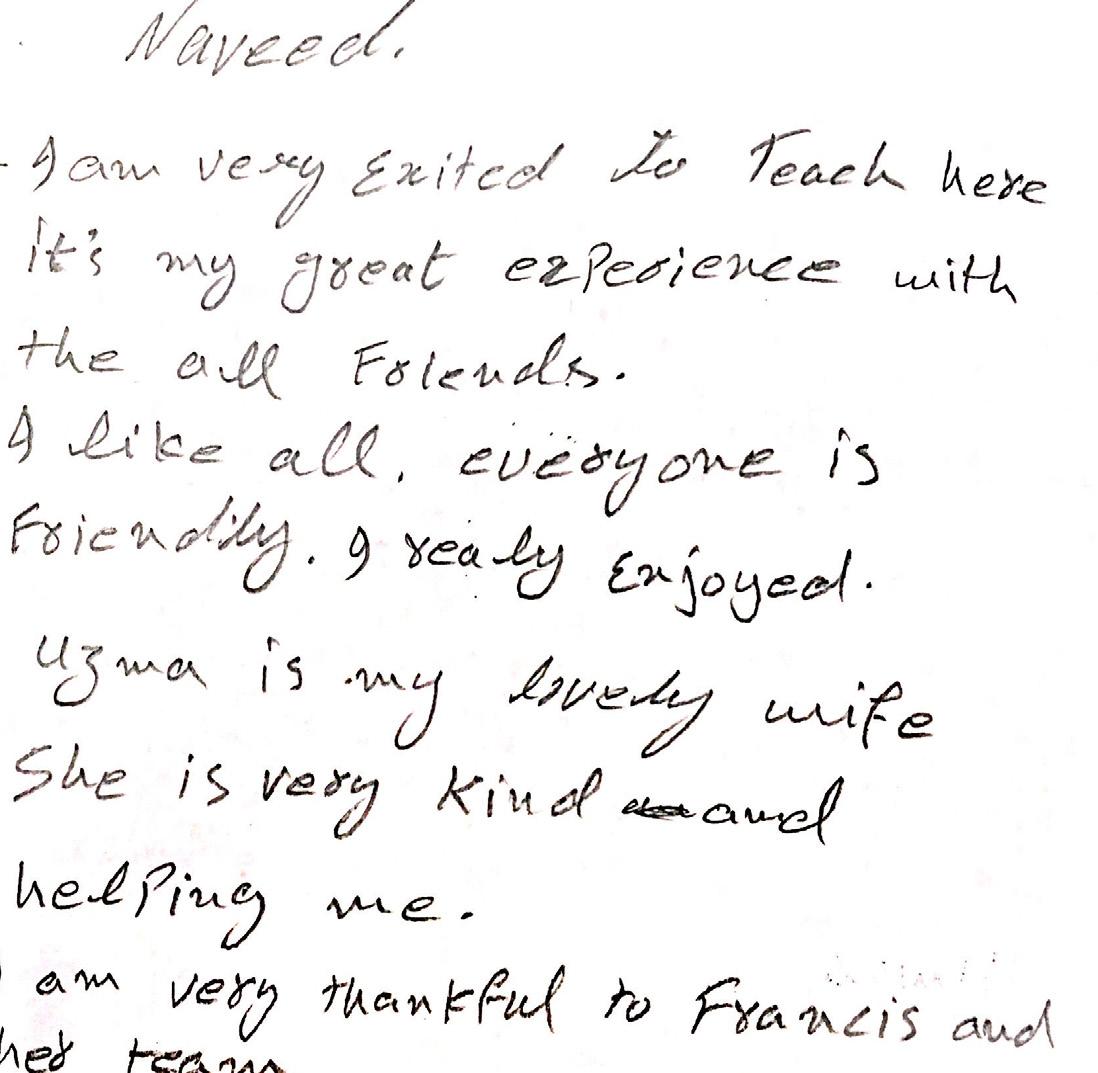 Naveed.
- I am very Exited to Teach here
it's my great experience with
the all Friends.
I like all, everyone is
Friendily. I realy Enjoyed.
Uzma is my lovely wife
She is very kind and
helping me.
I am very thankful to Francis and
her team